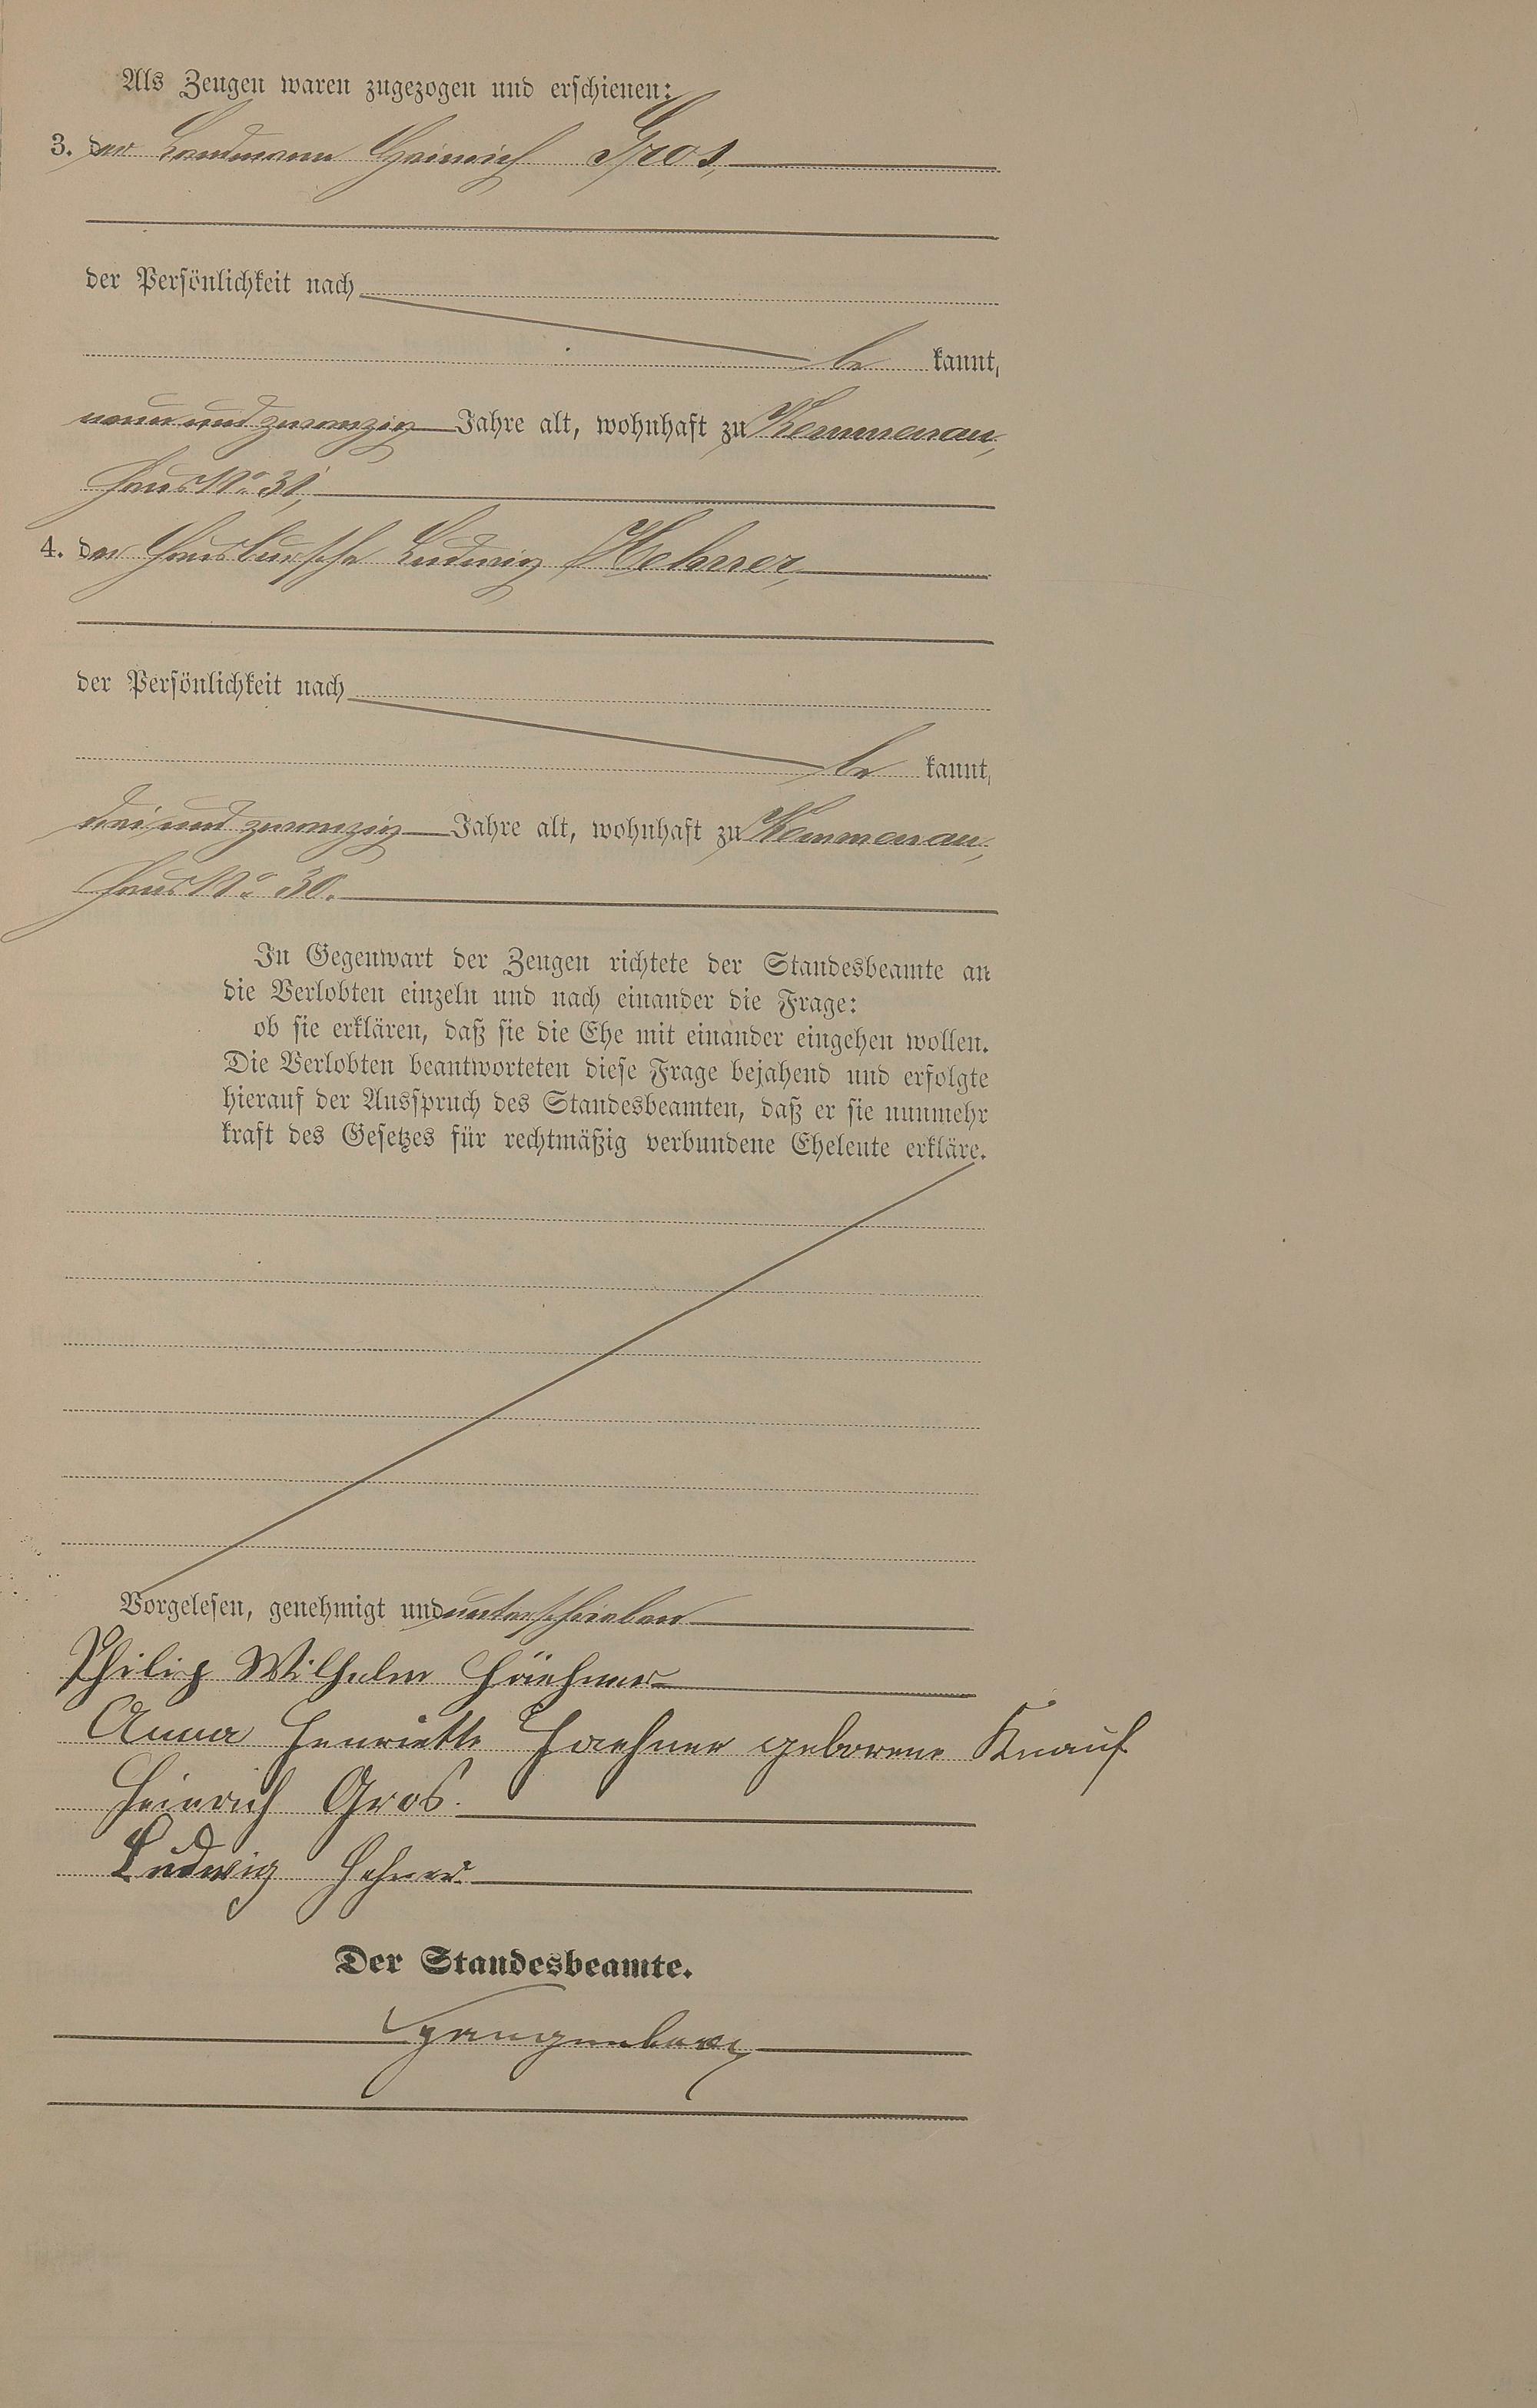 Als Zeugen waren zugezogen und erschienen:
3. der Landmann Heinrich Gros,
der Persönlichkeit nach
be kannt,
neun und zwanzig Jahre alt, wohnhaft zu Kemmenau,
Haus No. 31,
4. der Hausbursche Ludwig Hehner,
der Persönlichkeit nach
be kannt,
drei und zwanzig Jahre alt, wohnhaft zu Kemmenau,
Haus No. 30.
In Gegenwart der Zeugen richtete der Standesbeamte an
die Verlobten einzeln und nach einander die Frage:
ob sie erklären, daß sie die Ehe mit einander eingehen wollen.
Die Verlobten beantworteten diese Frage bejahend und erfolgte
hierauf der Ausspruch des Standesbeamten, daß er sie nunmehr
kraft des Gesetzes für rechtmäßig verbundene Eheleute erkläre.
Vorgelesen, genehmigt und unterschrieben
Philip Wilhelm
Anna Henriette Haehner geborene Knauf
Heinrich Gros.
Ludwig Hehner
Der Standesbeamte.